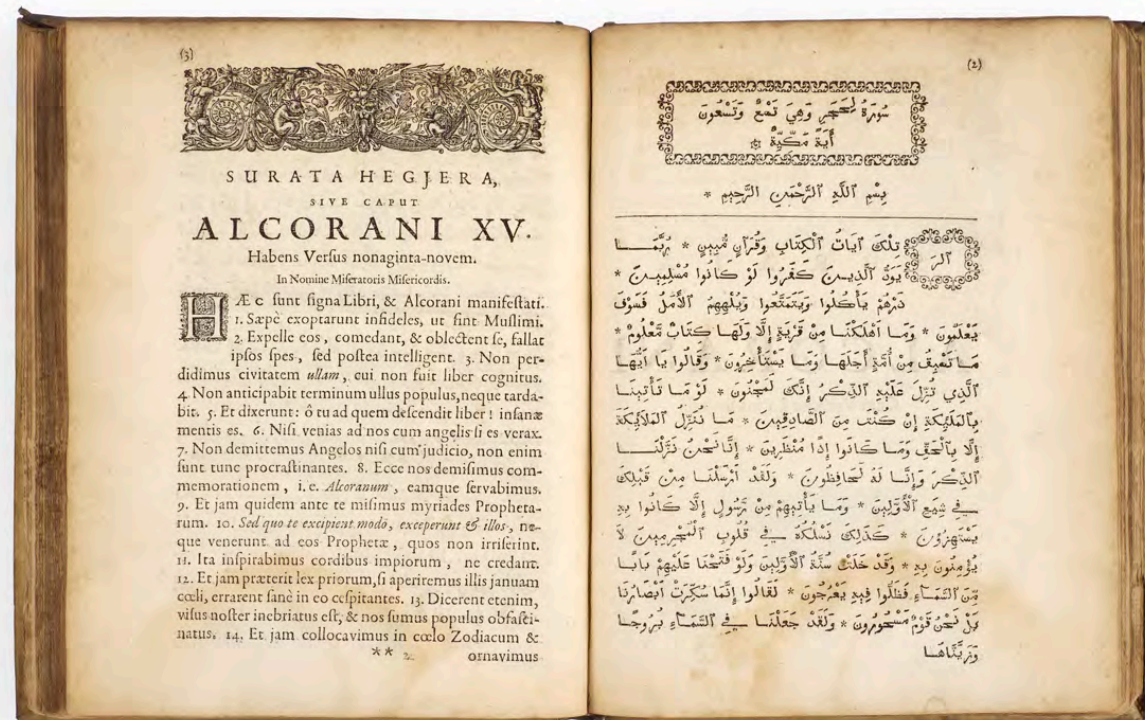 (3)
SURATA HEGJERA,
SIVE CAPUT
ALCORANI XV.
Habens Verſus nonaginta-novem.
In Nomine Miſeratoris Miſericordis.
HÆ c ſunt ſigna Libri, & Alcorani manifeſtati.
1. Sæpè exoptarunt infideles, ut ſint Muſlimi.
2. Expelle eos, comedant, & oblectent ſe, fallat
ipſos ſpes, ſed poſtea intelligent. 3. Non per-
didimus civitatem ullam, cui non fuit liber cognitus.
4. Non anticipabit terminum ullus populus, neque tarda-
bit. 5. Et dixerunt: ô tu ad quem deſcendit liber! inſanæ
mentis es. 6. Niſi venias ad nos cum angelis ſi es verax.
7. Non demittemus Angelos niſi cum judicio, non enim
ſunt tunc procraſtinantes. 8. Ecce nos demiſimus com-
memorationem, i. e. Alcoranum, eamque ſervabimus.
9. Et jam quidem ante te miſimus myriades Propheta-
rum. 10. Sed quo te excipient modo, exceperunt & illos, ne-
que venerunt ad eos Prophetæ, quos non irriſerint.
11. Ita inſpirabimus cordibus impiorum, ne credant.
12. Et jam præterit lex priorum, ſi aperiremus illis januam
cœli, errarent ſanè in eo ceſpitantes. 13. Dicerent etenim,
viſus noſter inebriatus eſt, & nos ſumus populus obfaſci-
natus. 14. Et jam collocavimus in cœlo Zodiacum &
** 2 ornavimus
(2)
سُورَةُ لِحَجَرِ وَهِيَ تَمْعٌ وَتَسْعُونَ
أَيَةً مَكِّيَّةً *
بِسْمِ ٱللَّهِ ٱلرَّحْمَنِ ٱلرَّحِيمِ *
الَرَ تِلْكَ آيَاتُ ٱلْكِتَابِ وَقُرَانٍ مُّبِينٍ * رُبَّمَا
يَوَدُّ ٱلَّذِينَ كَفَرُوا لَوْ كَانُوا مُسْلِمِينَ *
ذَرْهُمْ يَأْكُلُوا وَيَتَمَتَّعُوا وَيُلْهِهِمُ ٱلْأَمَلُ فَسَوْفَ
يَعْلَمُونَ * وَمَا أَهْلَكْنَا مِنْ قَرْيَةٍ إِلَّا وَلَهَا كِتَابٌ مَّعْلُومٌ *
مَا تَسْبِقُ مِنْ أُمَّةٍ أَجَلَهَا وَمَا يَسْتَأْخِرُونَ * وَقَالُوا يَا أَيُّهَا
ٱلَّذِي نُزِّلَ عَلَيْهِ ٱلذِّكْرُ إِنَّكَ لَمَجْنُونٌ * لَوْ مَا تَأْتِينَا
بِٱلْمَلَئِكَةِ إِنْ كُنْتَ مِنَ ٱلصَّادِقِينَ * مَا نُنَزِّلُ ٱلْمَلَائِكَةَ
إِلَّا بِٱلْحَقِّ وَمَا كَانُوا إِذًا مُنْظَرِينَ * إِنَّا نَحْنُ نَزَّلْنَا
ٱلذِّكْرَ وَإِنَّا لَهُ لَحَافِظُونَ * وَلَقَدْ أَرْسَلْنَا مِنْ قَبْلِكَ
فِي شِيَعِ ٱلْأَوَّلِينَ * وَمَا يَأْتِيهِمْ مِنْ رَسُولٍ إِلَّا كَانُوا بِهِ
يَسْتَهْزِؤُنَ * كَذَلِكَ نَسْلُكُهُ فِي قُلُوبِ ٱلْمُجْرِمِينَ لَا
يُؤْمِنُونَ بِهِ * وَقَدْ خَلَتْ سُنَّةُ ٱلْأَوَّلِينَ وَلَوْ فَتَحْنَا عَلَيْهِمْ بَابًا
مِّنَ ٱلسَّمَاءِ فَظَلُّوا فِيهِ يَعْرُجُونَ * لَقَالُوا إِنَّمَا سُكِّرَتْ أَبْصَارُنَا
بَلْ نَحْنُ قَوْمٌ مَسْحُورُونَ * وَلَقَدْ جَعَلْنَا فِي ٱلسَّمَاءِ بُرُوجًا
وَزَيَّنَّاهَا